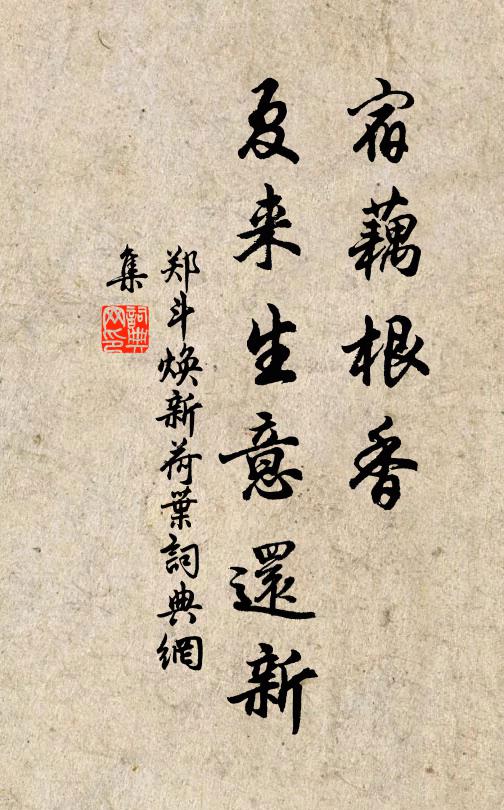 宿藕根香
夏来生意還新
郑斗焕新荷葉詞典網
集
詞典网印